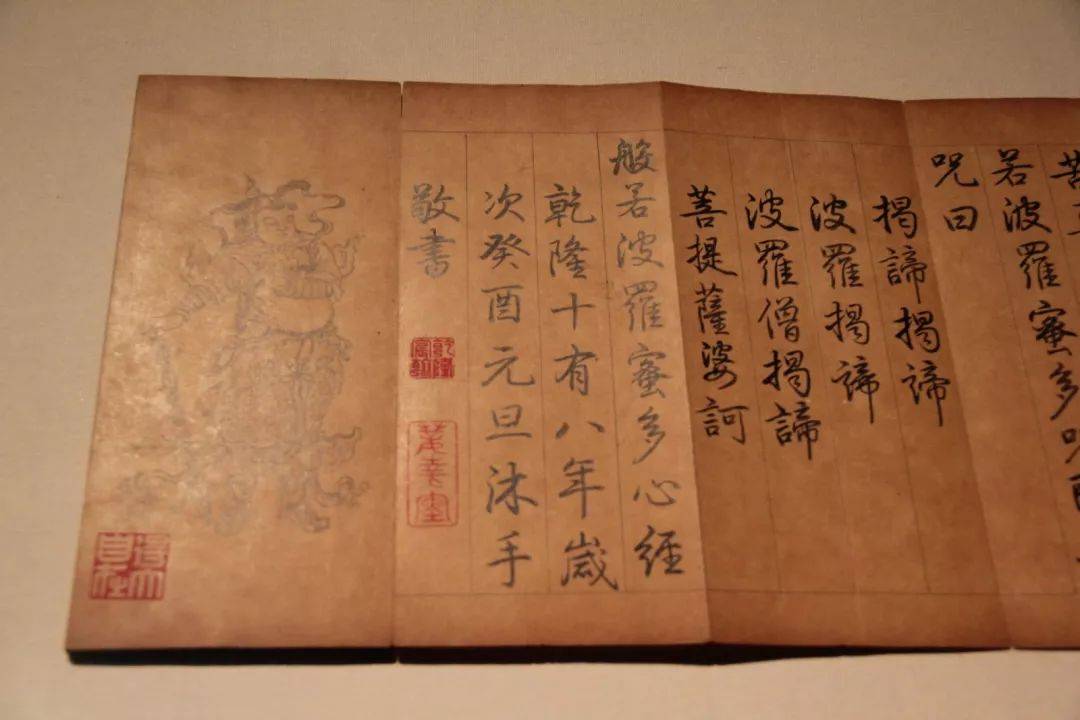 若波羅蜜多咒
咒曰
揭諦揭諦
波羅揭諦
波羅僧揭諦
菩提薩婆訶
般若波羅蜜多心經
乾隆十有八年歲
次癸酉元旦沐手
敬書
乾隆
宸翰
得大
自在